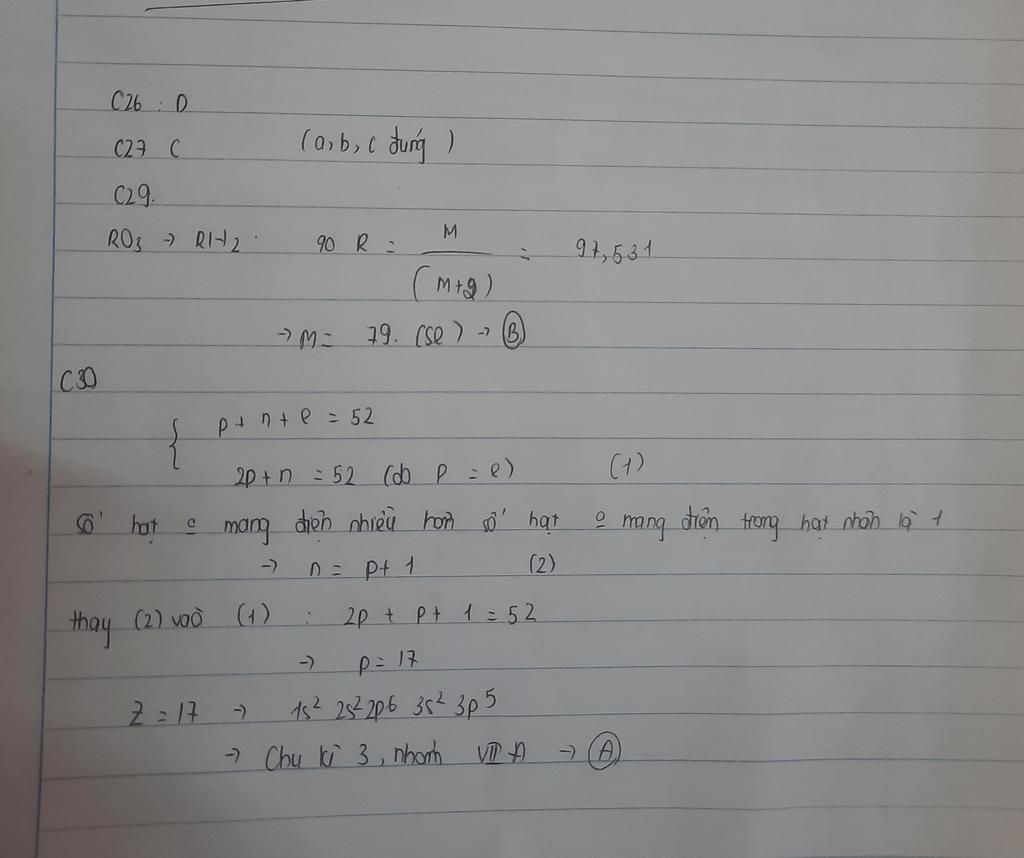 C26 : D
C27 C (a, b, c đúng)
C29.
RO₃ → RH₂. 90 R = M / (M+2) = 97,531
→ M = 79. (Se) → (B)
C30
{ p + n + e = 52
2p + n = 52 (do p = e) (1)
Số hạt o mang điện nhiều hơn số hạt o mang điện trong hạt nhân là 1
→ n = p + 1 (2)
thay (2) vào (1) : 2p + p + 1 = 52
→ p = 17
Z = 17 → 1s² 2s² 2p⁶ 3s² 3p⁵
→ Chu kì 3, nhóm VII A → (A)